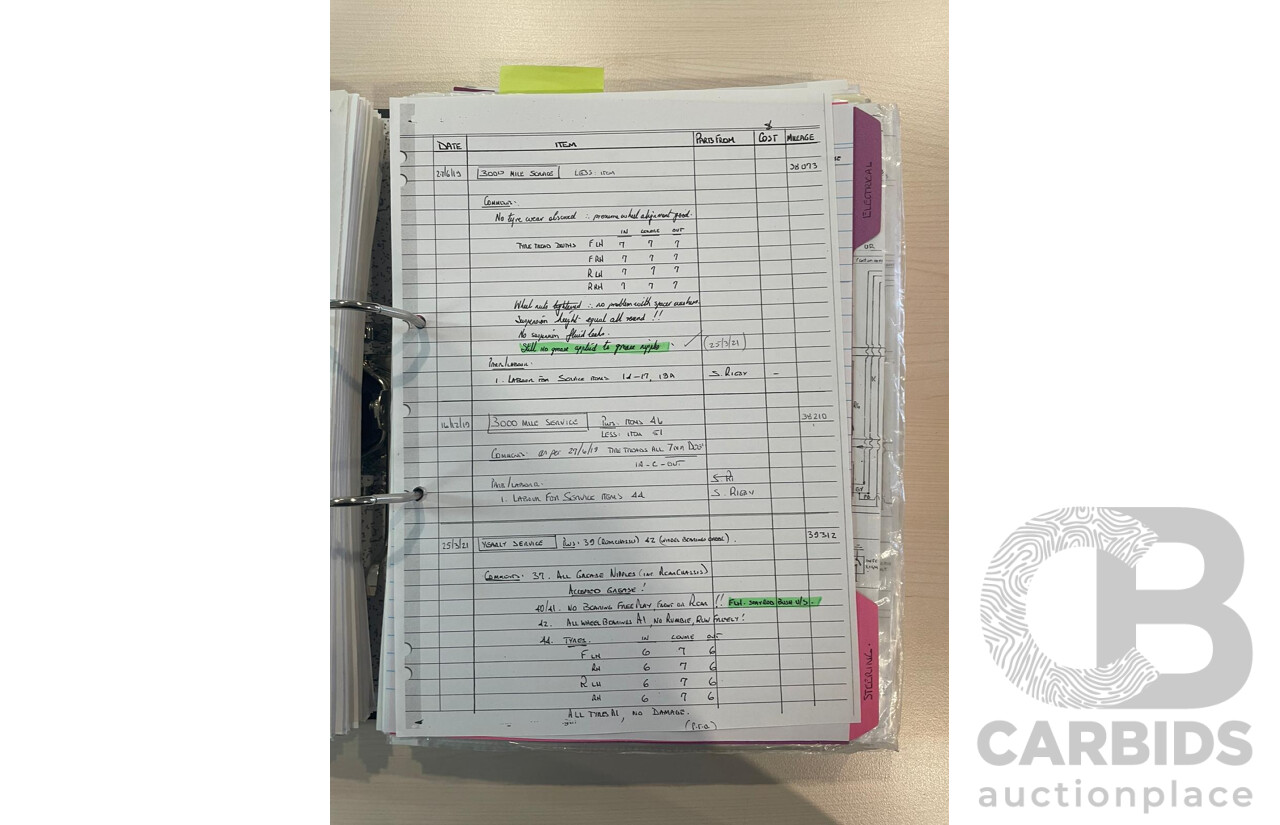 $
DATE ITEM PARTS FROM COST MILEAGE
27/6/19 3000 MILE SERVICE LESS: ITEM 38073
COMMENTS:-
No tyre wear observed ∴ presume wheel alignment good.
IN CENTRE OUT
TYRE TREAD DEPTHS F LH 7 7 7
F RH 7 7 7
R LH 7 7 7
R RH 7 7 7
Wheel nuts tightened ∴ no problem with spacer washers
Suspension height equal all round !!
No suspension fluid leaks.
Still no grease applied to grease nipples. ✓ (25/3/21)
PARTS/LABOUR:-
1. LABOUR FOR SERVICE ITEMS 1d-17, 18A S. RIGBY –
16/12/19 3000 MILE SERVICE PLUS: ITEMS 46 38210
LESS: ITEM 51
COMMENTS: as per 27/6/19 TYRE TREADS ALL 7mm DEEP
IN-C-OUT
PARTS/LABOUR:-
1. LABOUR FOR SERVICE ITEMS 44 S. RIGBY
25/3/21 YEARLY SERVICE PLUS: 39 (REAR CHASSIS) 42 (WHEEL BEARINGS). 39312
COMMENTS: 37. ALL GREASE NIPPLES (INC REAR CHASSIS)
ACCEPTED GREASE!
40/41. NO BEARING FREE PLAY, FRONT OR REAR !!
42. ALL WHEEL BEARINGS A1, NO RUMBLE, RUN FREELY!
44. TYRES. IN CENTRE OUT
F LH 6 7 6
RH 6 7 6
R LH 6 7 6
RH 6 7 6
ALL TYRES A1, NO DAMAGE.
(P.T.O)
ELECTRICAL
STEERING.
CB
CARBIDS
auctionplace